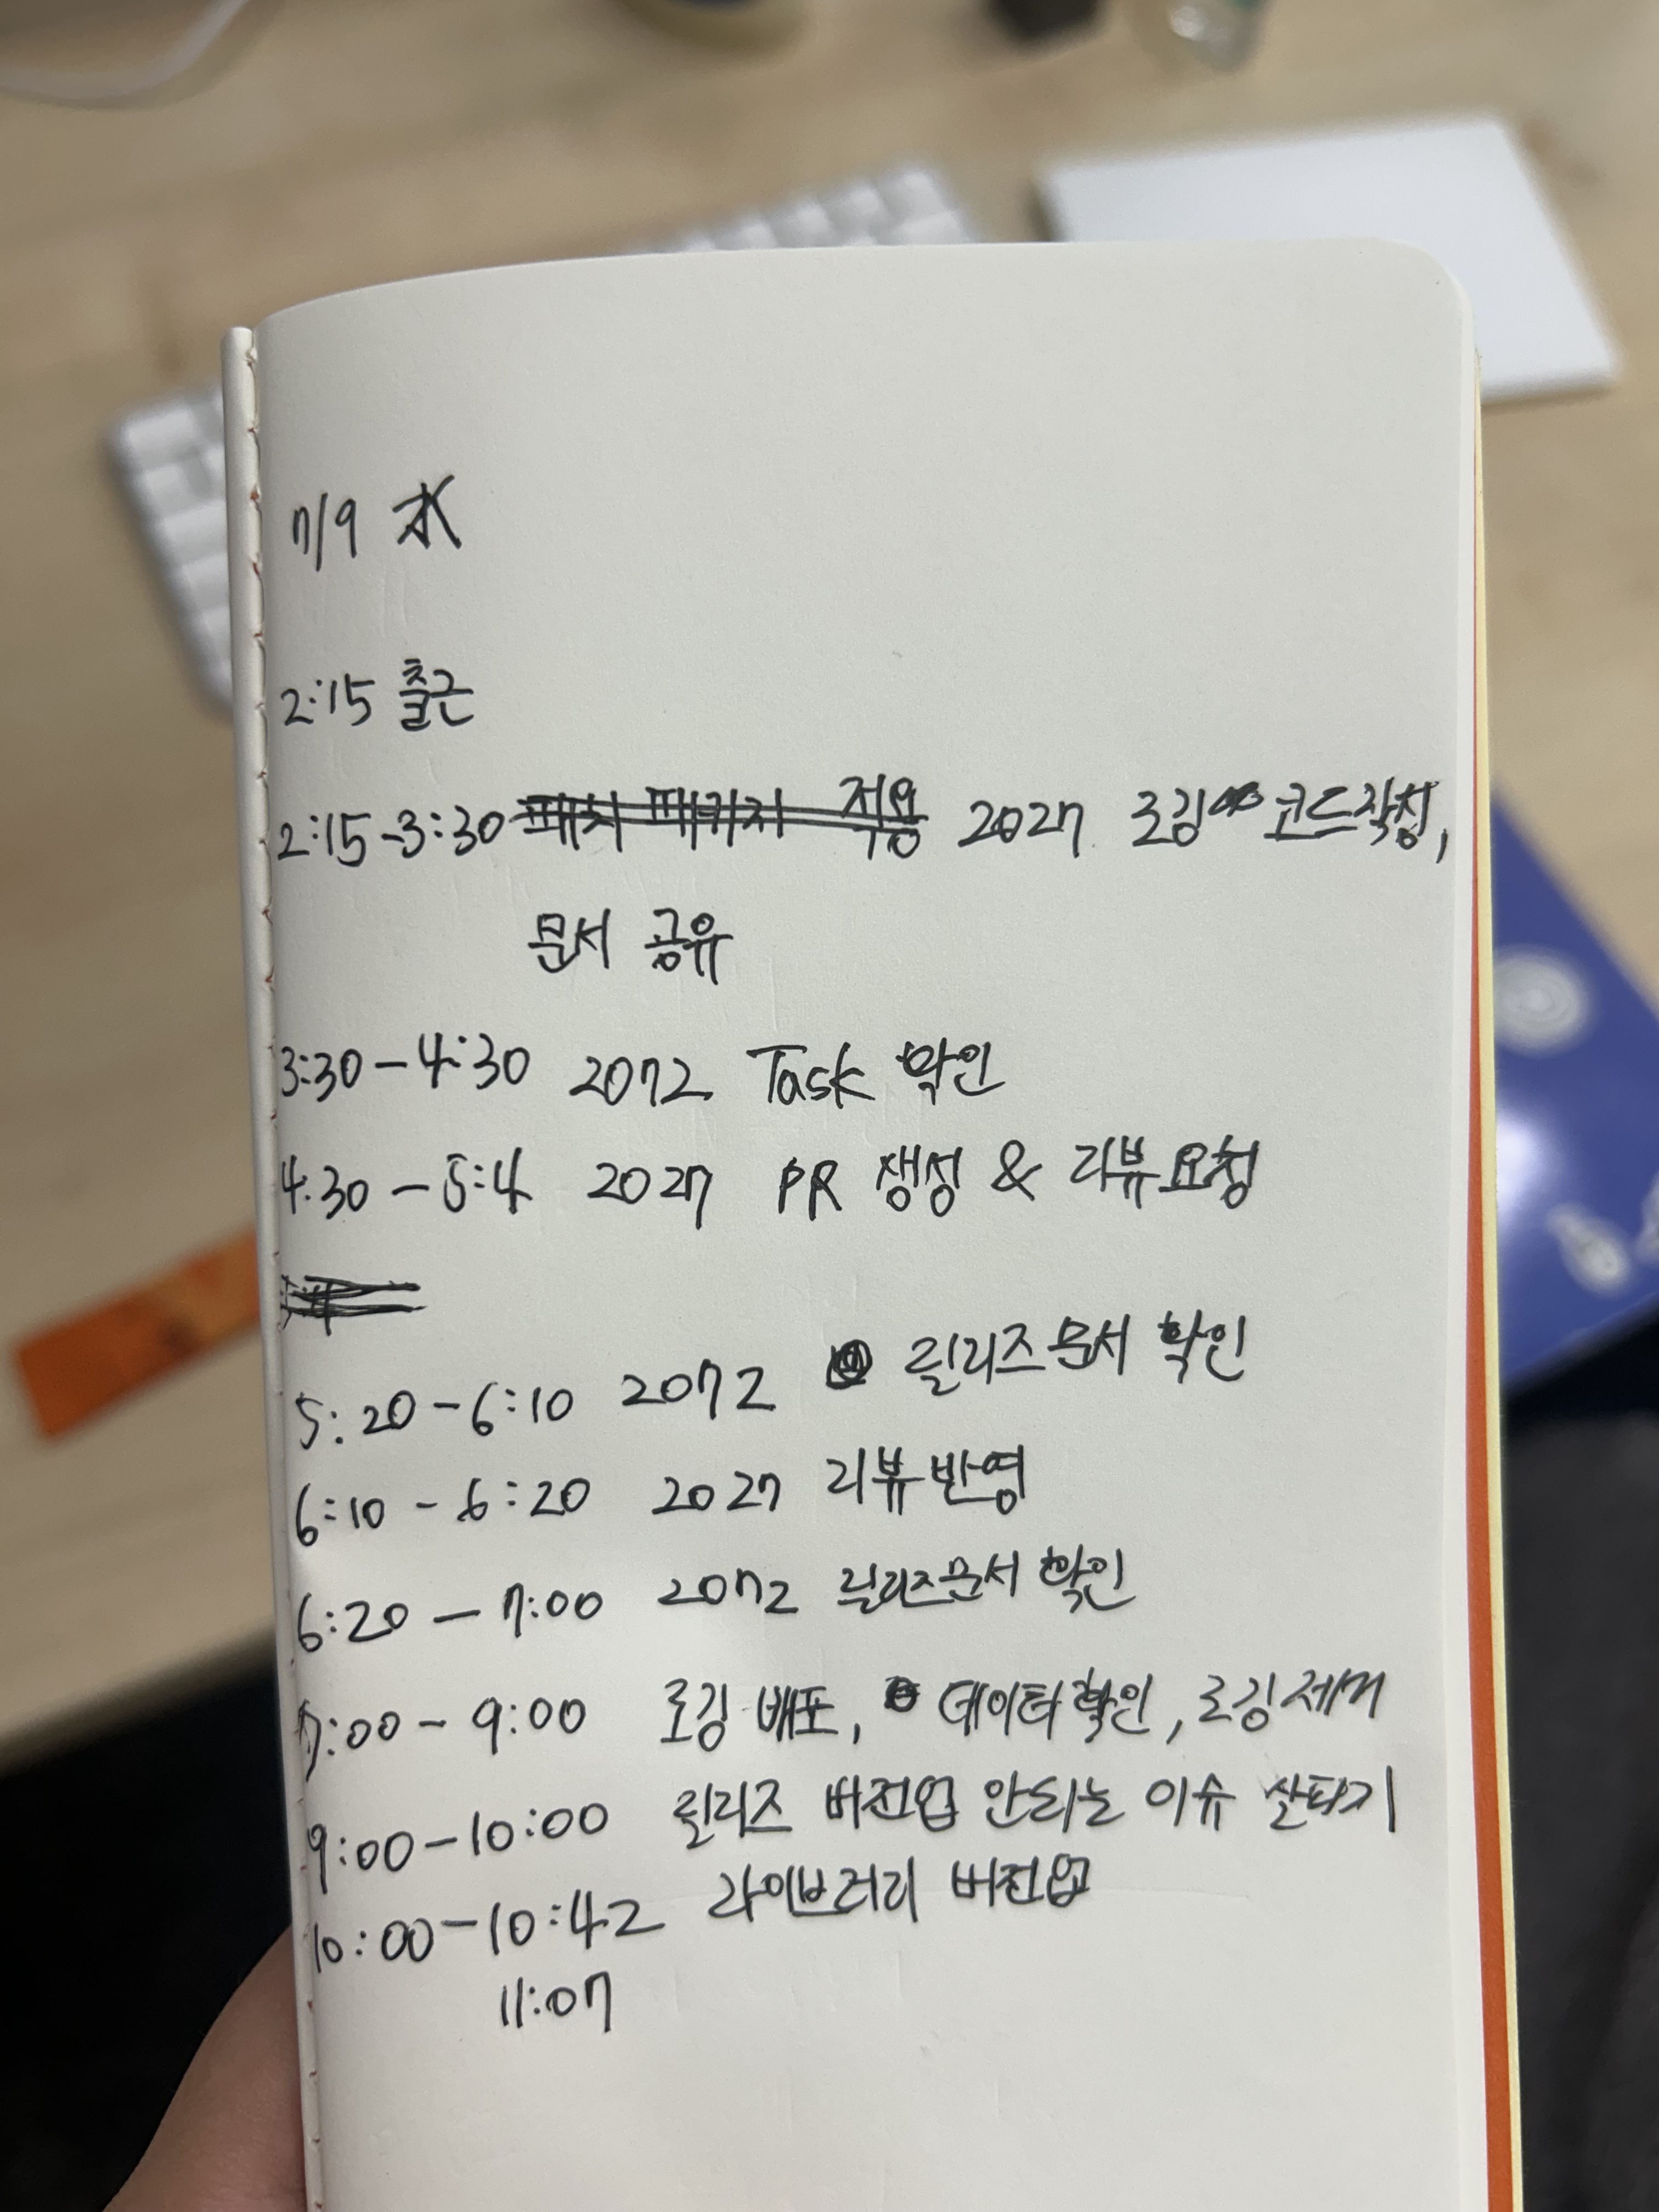 7/9 水
2:15 출근
2:15-3:30 패치 패키지 적용 2027 로깅 코드작성,
문서 공유
3:30-4:30 2072 Task 확인
4:30-5:4 2027 PR 생성 & 리뷰요청
5:20-6:10 2072 릴리즈문서 확인
6:10-6:20 2027 리뷰반영
6:20-7:00 2072 릴리즈문서 확인
7:00-9:00 로깅 배포, 데이터확인, 로깅제거
9:00-10:00 릴리즈 버전업 안되는 이슈 살피기
10:00-10:42 라이브러리 버전업
11:07